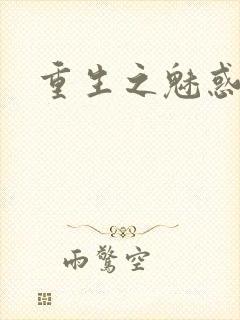 重生之魅惑
雨驚空